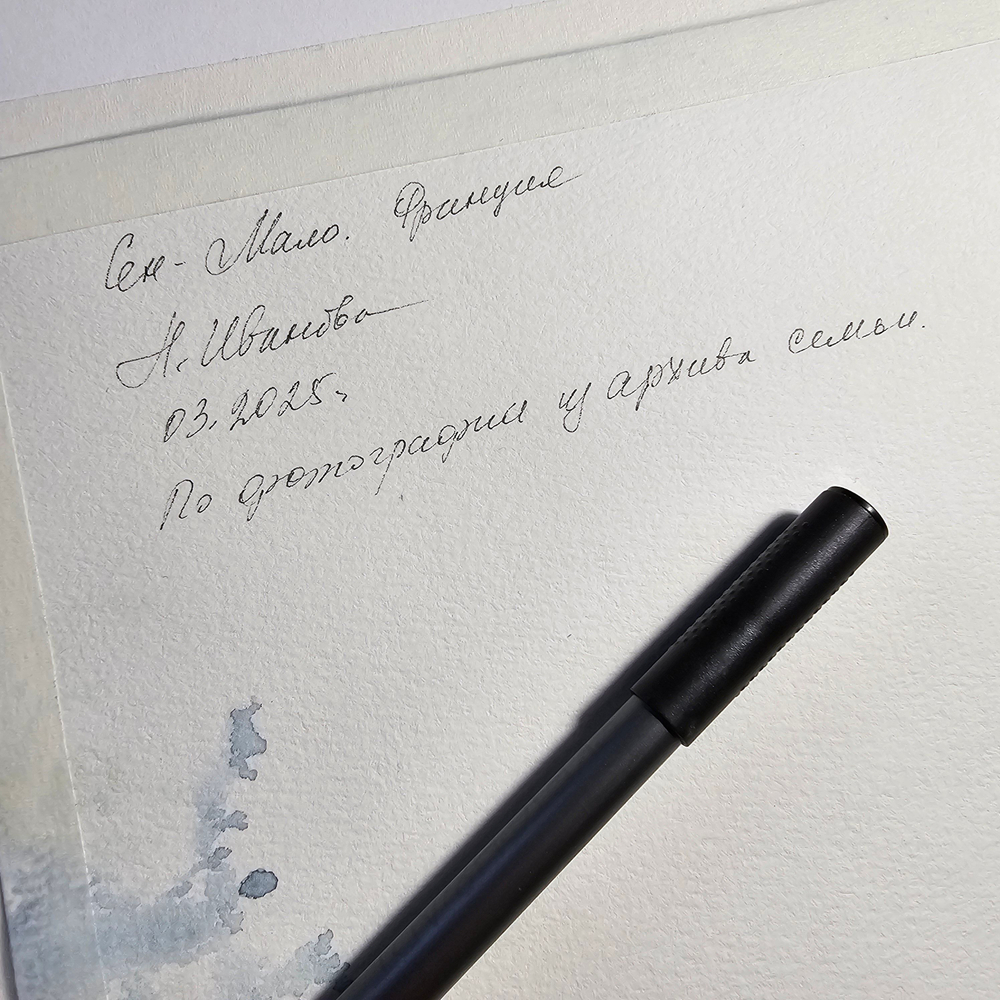 Сен-Мало. Франция
Н. Иванова
03.2025г.
По фотографии из архива семьи.